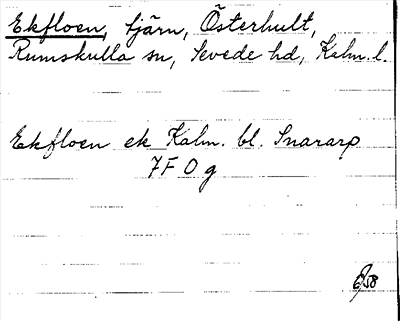 Ekfloen, tjärn, Österhult,
Rumskulla sn, Sevede hd, Kalm. l.
Ekfloen ek Kalm. bl. Snararp
7 F 0 g